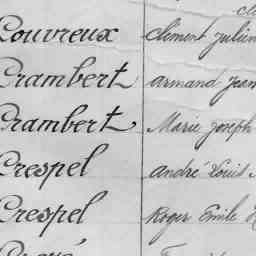 Couvreux Clément Julien
Crambert Armand Jean
Crambert Marie Joseph
Crespel André Louis
Crespel Roger Emile